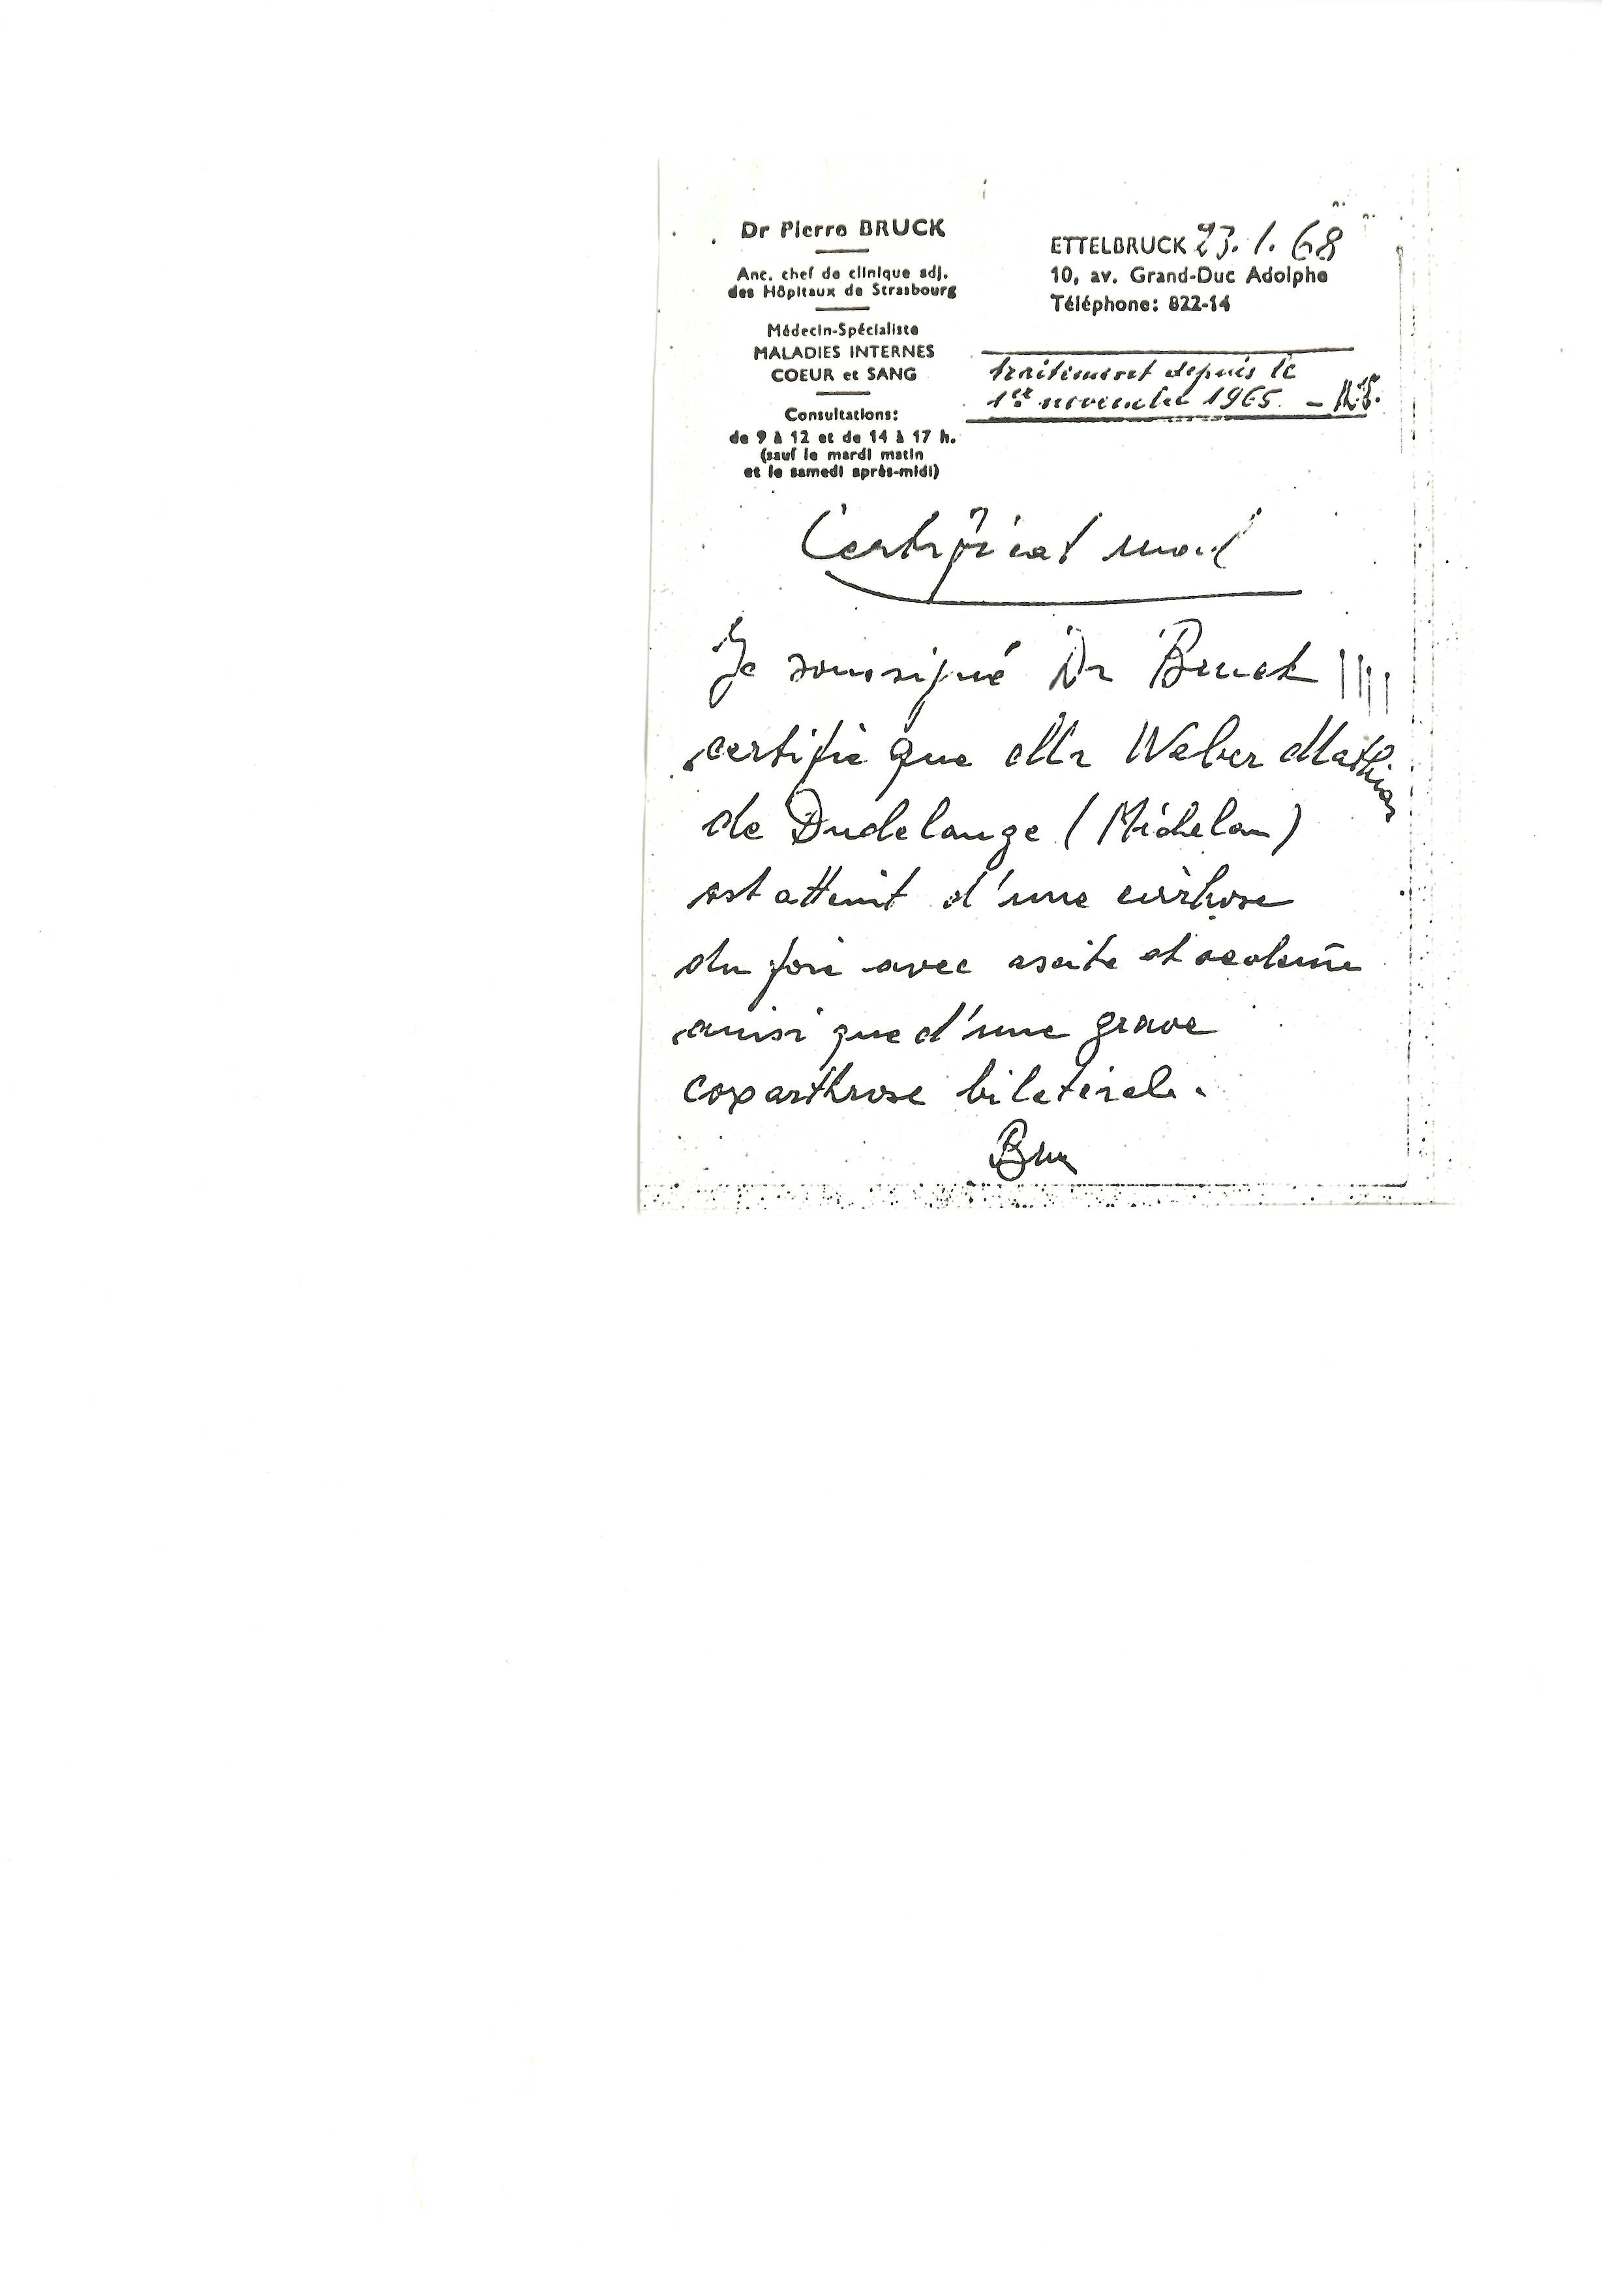 Dr Pierre BRUCK
Anc. chef de clinique adj.
des Hôpitaux de Strasbourg
Médecin-Spécialiste
MALADIES INTERNES
COEUR et SANG
Consultations:
de 9 à 12 et de 14 à 17 h.
(sauf le mardi matin
et le samedi après-midi)
ETTELBRUCK 23.1.68
10, av. Grand-Duc Adolphe
Téléphone: 822-14
traitement depuis le
1er novembre 1965. —
Certificat
Je soussigné Dr Bruck
certifie que Mr Weber Mathias
de Dudelange (Michelau)
est atteint d'une cirrhose
du foie avec ascite et oedème
ainsi que d'une grave
coxarthrose bilatérale.